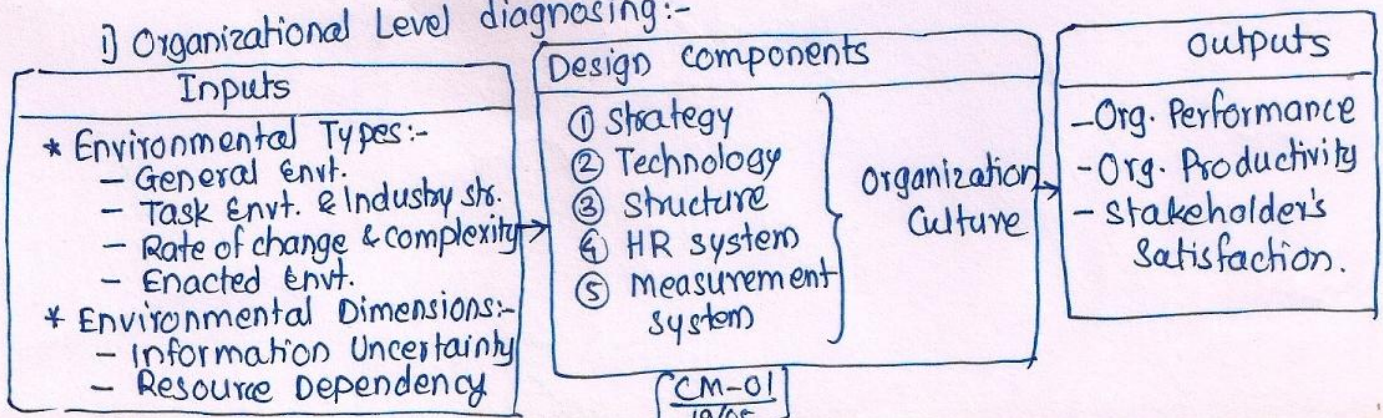 i) Organizational Level diagnosing:-
Inputs
* Environmental Types:-
- General Envt.
- Task Envt. & Industry str.
- Rate of change & complexity
- Enacted Envt.
* Environmental Dimensions:-
- Information Uncertainty
- Resource Dependency
Design components
① Strategy
② Technology
③ Structure
④ HR system
⑤ measurement
system
Organization
Culture
Outputs
- Org. Performance
- Org. Productivity
- Stakeholder's
Satisfaction.
CM-01